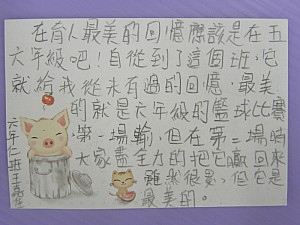 在育人最美的回憶應該是在五
六年級吧！自從到了這個班，它
就給我從未有過的回憶，最美
的就是六年級的籃球比賽
，第一場輸，但在第二場時
大家盡全力的把它贏回來
雖然很累，但它是
最美的。
六年仁班王